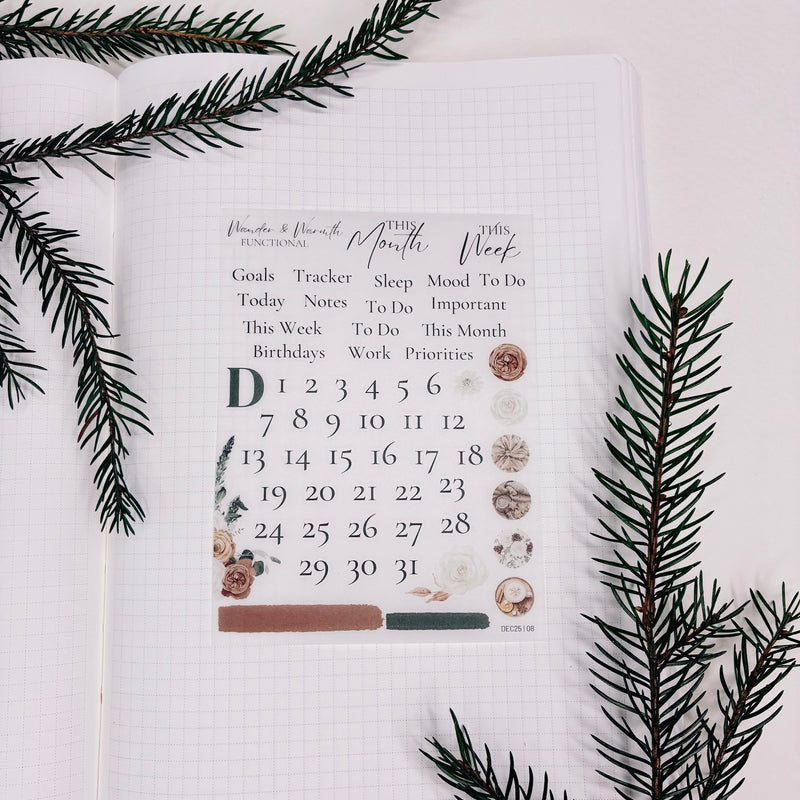 Wander & Warmth
FUNCTIONAL
THIS
Month
THIS
Week
Goals Tracker Sleep Mood To Do
Today Notes To Do Important
This Week To Do This Month
Birthdays Work Priorities
D 1 2 3 4 5 6
7 8 9 10 11 12
13 14 15 16 17 18
19 20 21 22 23
24 25 26 27 28
29 30 31
DEC25|08